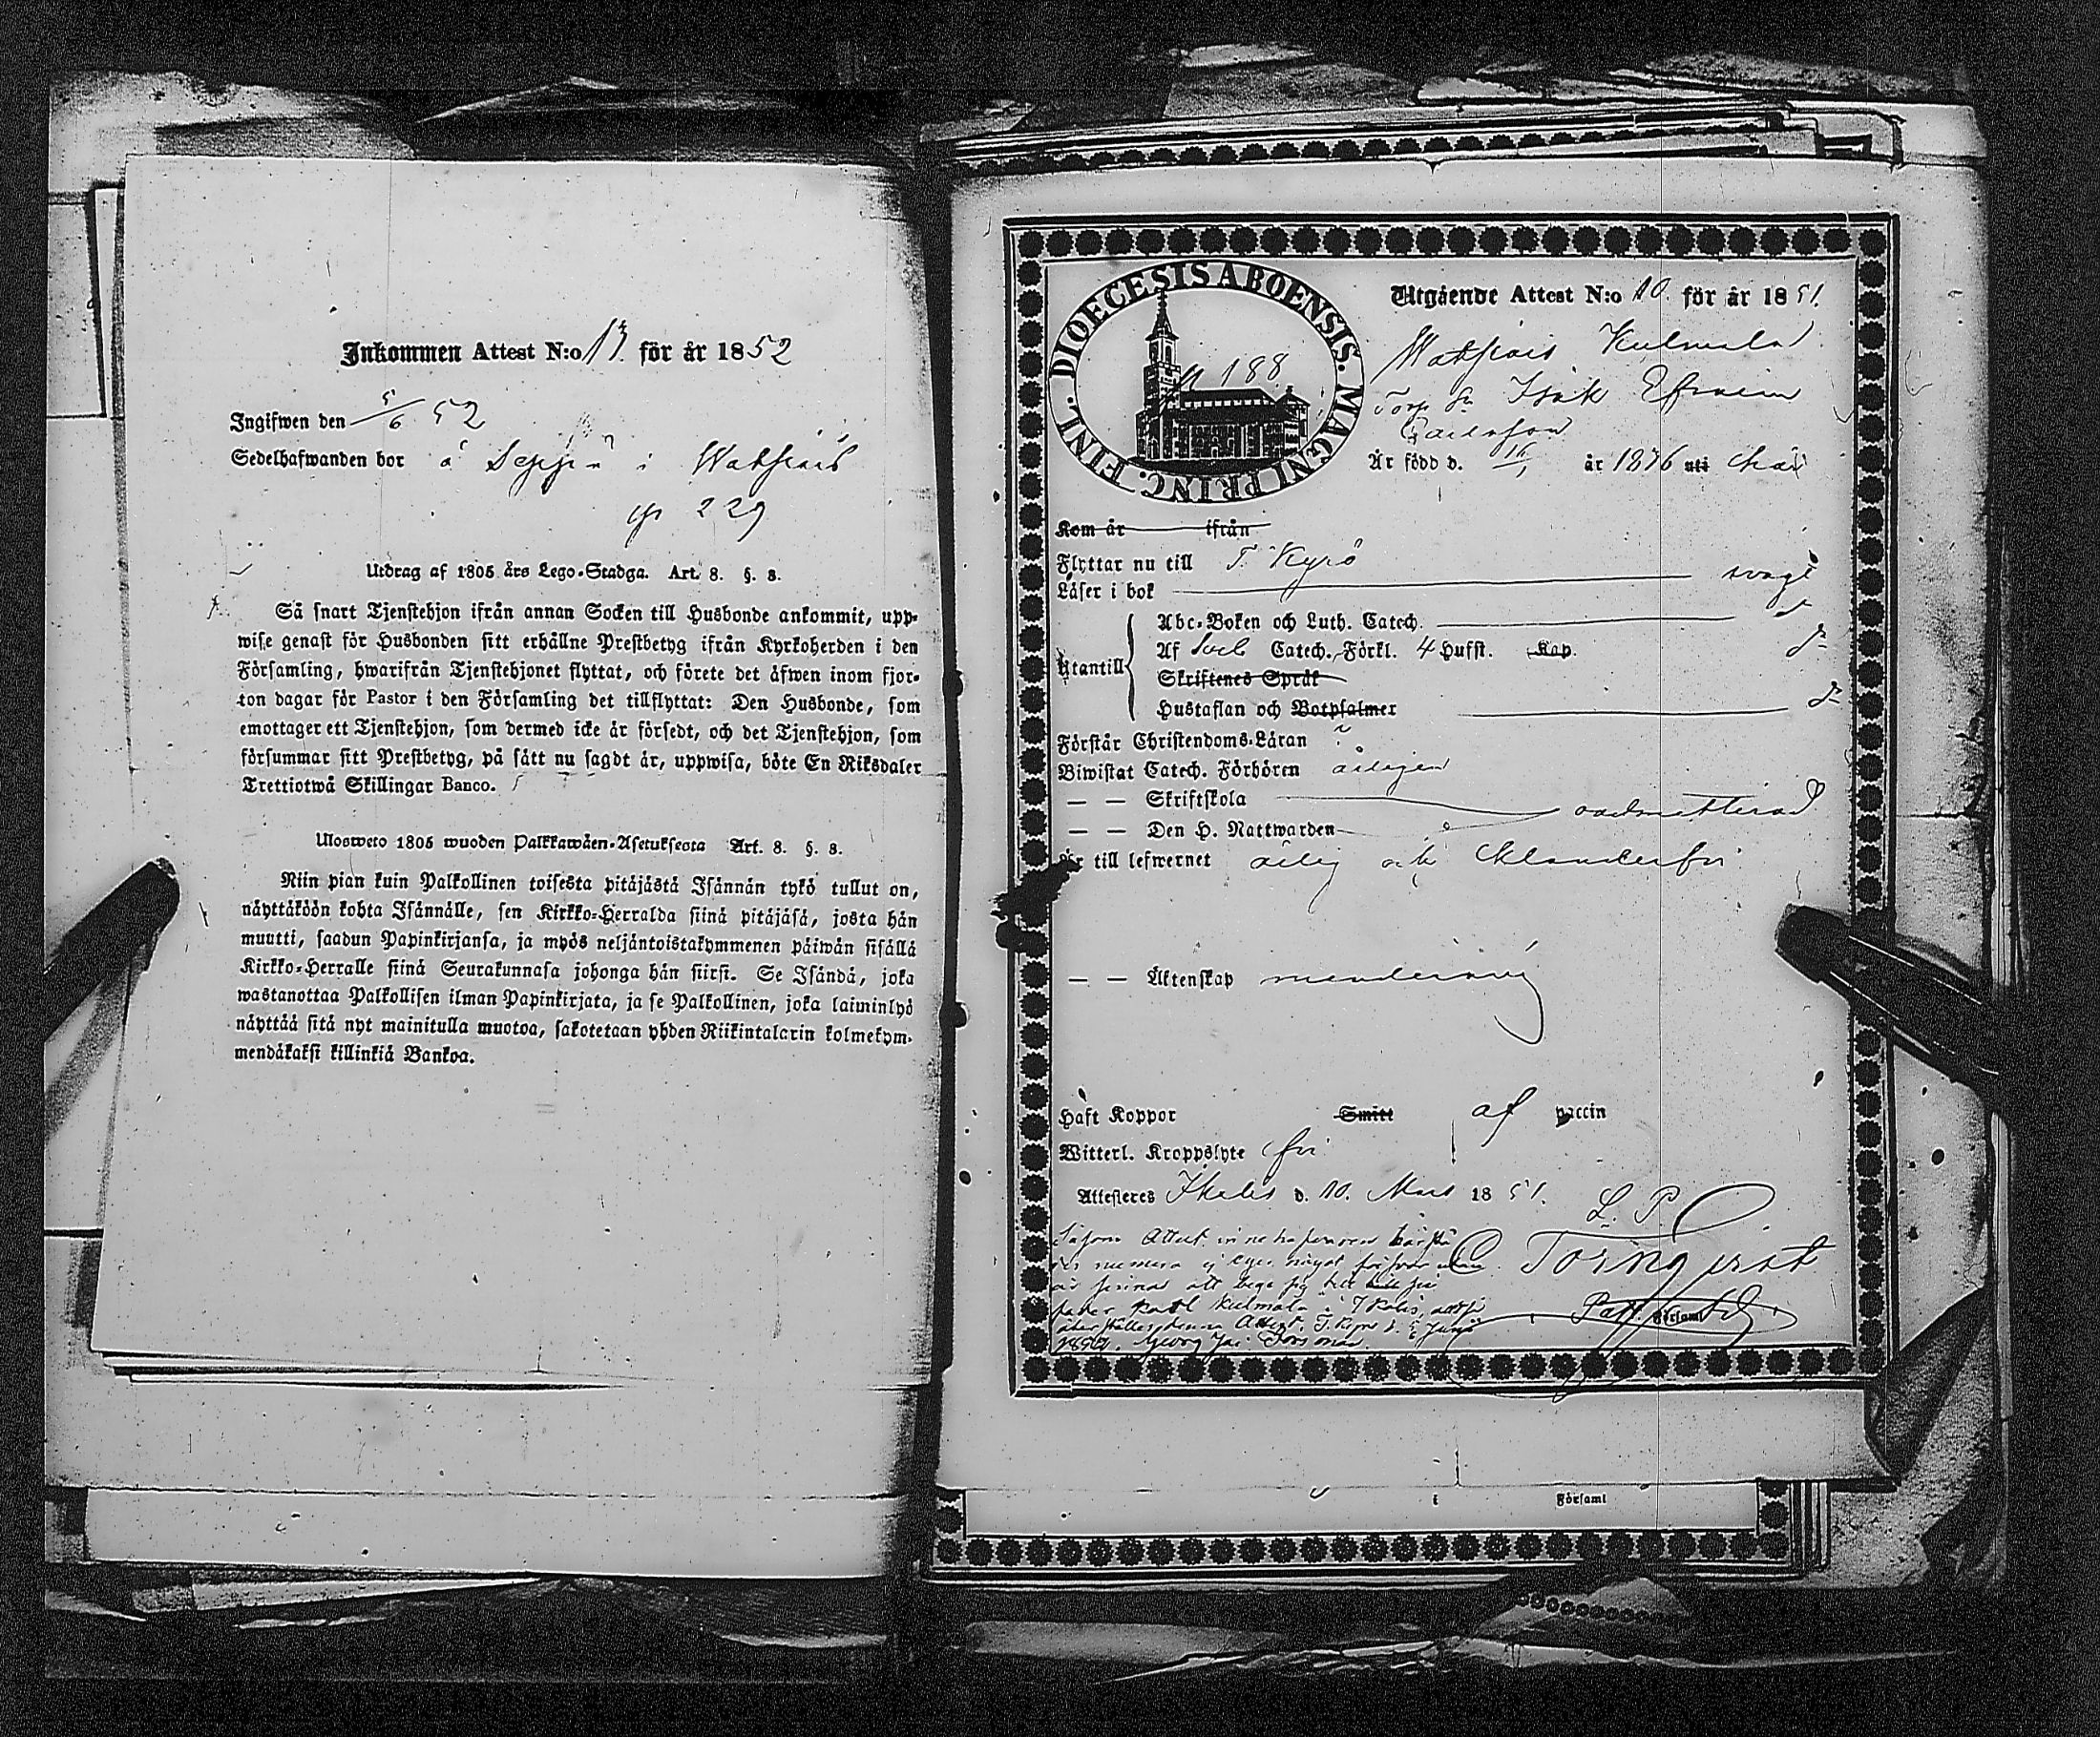 Inkommen Attest N:o 13. för år 1852
Ingifwen den 5/6 52
Sedelhafwanden bor å Seppä i Watsiais
p 229
Utdrag af 1805 års Lego-Stadga. Art. 8. §. 8.
Så snart Tjenstehjon ifrån annan Socken till Husbonde ankommit, upp-
wise genast för Husbonden sitt erhållne Prestbetyg ifrån Kyrkoherden i den
Församling, hwarifrån Tjenstehjonet flyttat, och förete det äfwen inom fjor-
ton dagar för Pastor i den Församling det tillflyttat: Den Husbonde, som
emottager ett Tjenstehjon, som dermed icke är försedt, och det Tjenstehjon, som
försummar sitt Prestbetyg, på sätt nu sagdt är, uppwisa, böte En Riksdaler
Trettiotwå Skillingar Banco.
Ulosweto 1805 wuoden Palkkawäen-Asetuksesta Art. 8. §. 8.
Niin pian kuin Palkollinen toisesta pitäjästä Isännän tykö tullut on,
näyttäköön kohta Isännälle, sen Kirkko-Herralda siinä pitäjäsä, josta hän
muutti, saadun Papinkirjansa, ja myös neljäntoistakymmenen päiwän sisällä
Kirkko-Herralle siinä Seurakunnasa johonga hän siirsi. Se Isändä, joka
wastanottaa Palkollisen ilman Papinkirjata, ja se Palkollinen, joka laiminlyö
näyttää sitä nyt mainitulla muotoa, sakotetaan yhden Riikintalarin kolmekym-
mendäkaksi killinkiä Bankoa.
DIOECESIS ABOENSIS. MAGNI PRINC. FINL.
p 188
Utgående Attest N:o 10. för år 1851.
Watsiais Kulmala
Torp. Sn Isak Efraim
Carlsson
Är född d. år 1836 uti
Kom år ifrån
Flyttar nu till T. Kyrö
Läser i bok svagt
Utantill
Abc-Boken och Luth. Catech. d:o
Af Sveb Catech. Förkl. 4 Hufst. Kap. d:o
Skriftenes Språk
Hustaflan och Botpsalmer d:o
Förstår Christendoms-Läran
Biwistat Catech. Förhören årligen
— — Skriftskola oadmitterad
— — Den H. Nattwarden
Är till lefwernet ärlig och klanderfri
— — Äktenskap minderårig
Haft Koppor Smitt af vaccin
Witterl. Kroppslyte fri
Attesteres Ikalis d. 10. Mars 1851.
L. P.
Såsom Attest innehafvaren
nu mera ej eger något försvar utan
är sinnad att bege sig till sin
fader Karl Kulmala i Ikalis, altså
återställes denna Attest. T. Kyrö d. 5 Juni
1852. Georg Jac. Forsman.
C. Törnqvist
Past.
Församl
i Församl